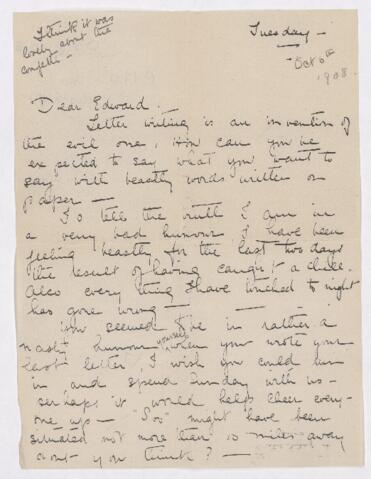 I think it was
lovely about the
confetti -
Tuesday -
Oct 6th
1908.
Dear Edward.
Letter writing is an invention of
the evil one, How can you be
expected to say what you want to
say with beastly words written on
paper -
To tell the truth I am in
a very bad humour I have been
feeling beastly for the last two days
the result of having caught a chill.
Also every thing I have touched to night
has gone wrong -
You seemed to be in rather a
nasty humour yourself when you wrote your
last letter, I wish you could run
in and spend Sunday with us -
perhaps it would help cheer every-
one up - "Soo" might have been
situated not more than 10 miles away
don't you think? -